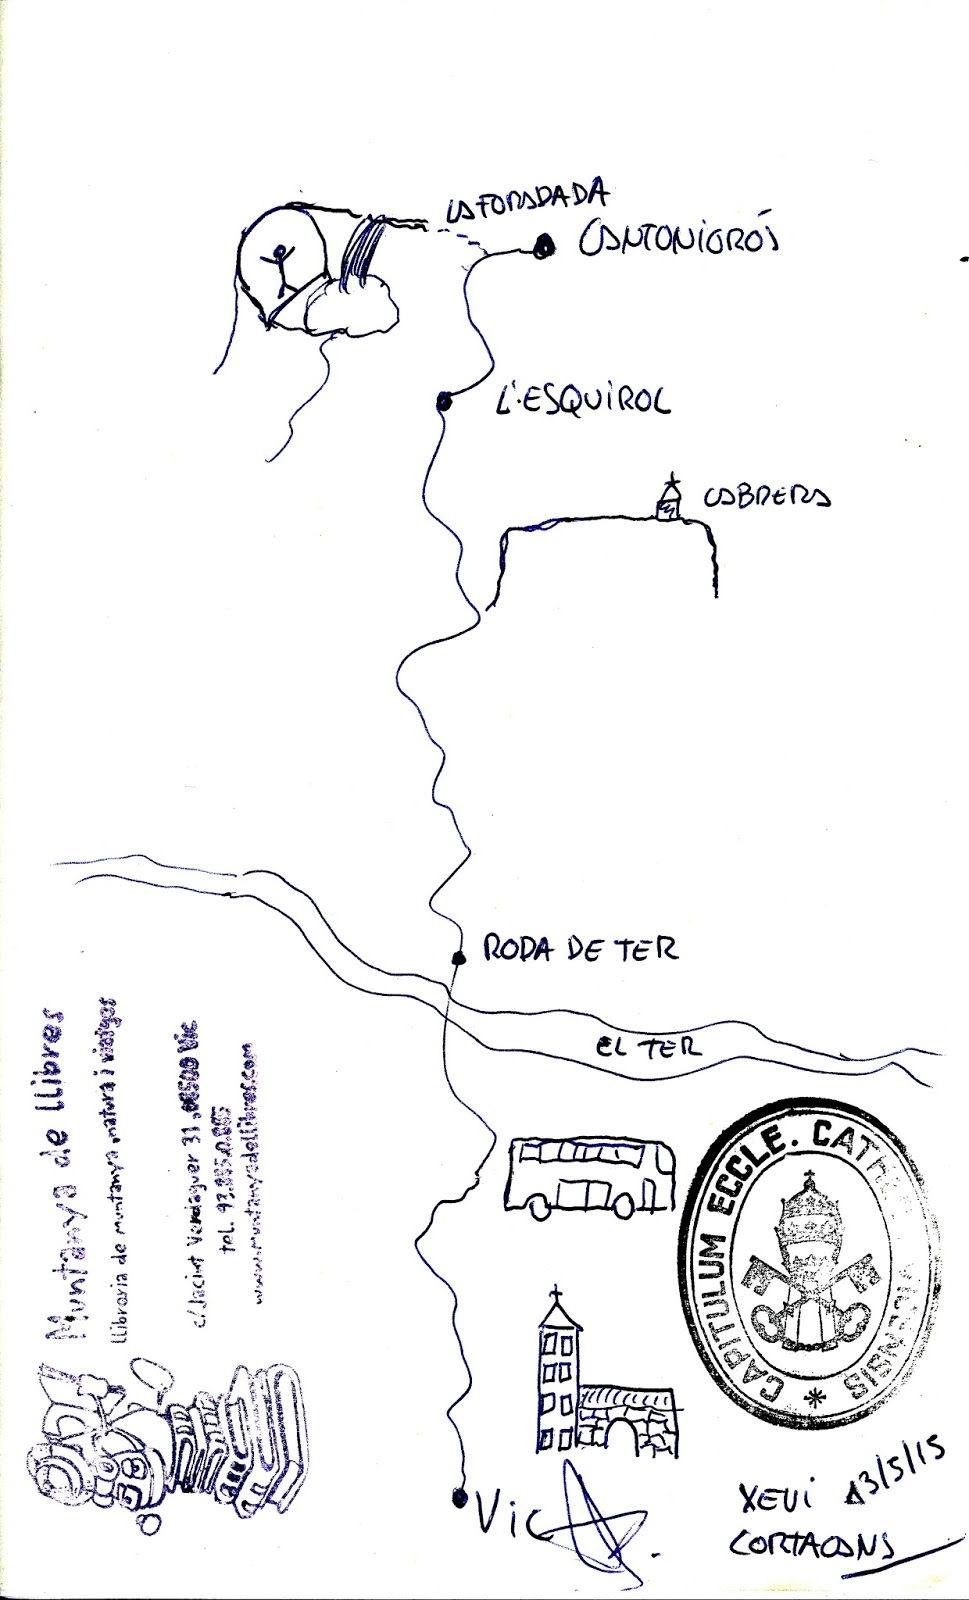 LA FORADADA
CANTONIGRÓS
L'ESQUIROL
CABRERA
RODA DE TER
EL TER
Muntanya de llibres
llibreria de muntanya, natura i viatges
c/Jacint Verdaguer 31, 08500 Vic
tel. 93.885
www.muntanyadellibres.com
CAPITULUM ECCLE. CATHE VICENSIS
Vic
XEVI 13/5/15
CORTACANS